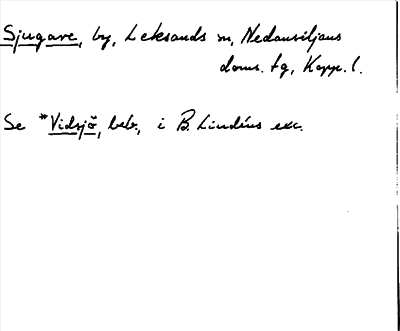 Sjugare, by, Leksands sn, Nedansiljans
doms. tg, Kopp. l.
Se *Vidsjö, beb., i B. Lindéns exc.